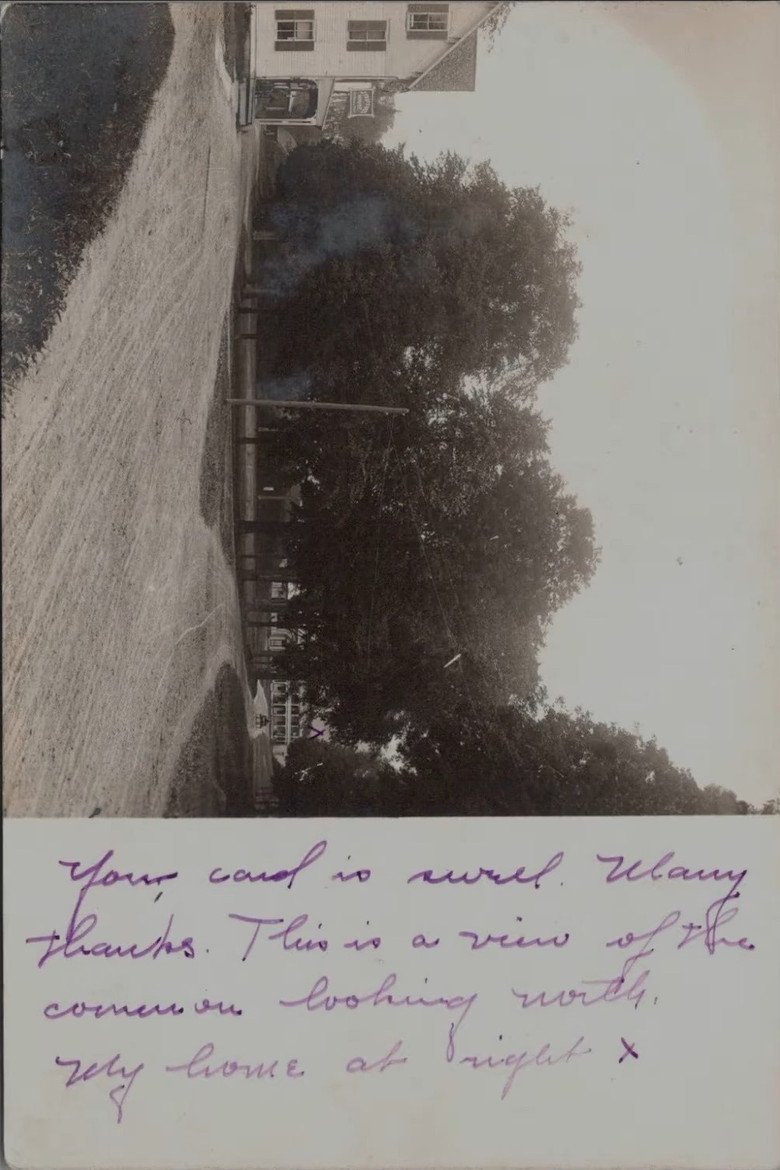 Your card is swell. Many
thanks. This is a view of the
common looking north.
My home at right x
x